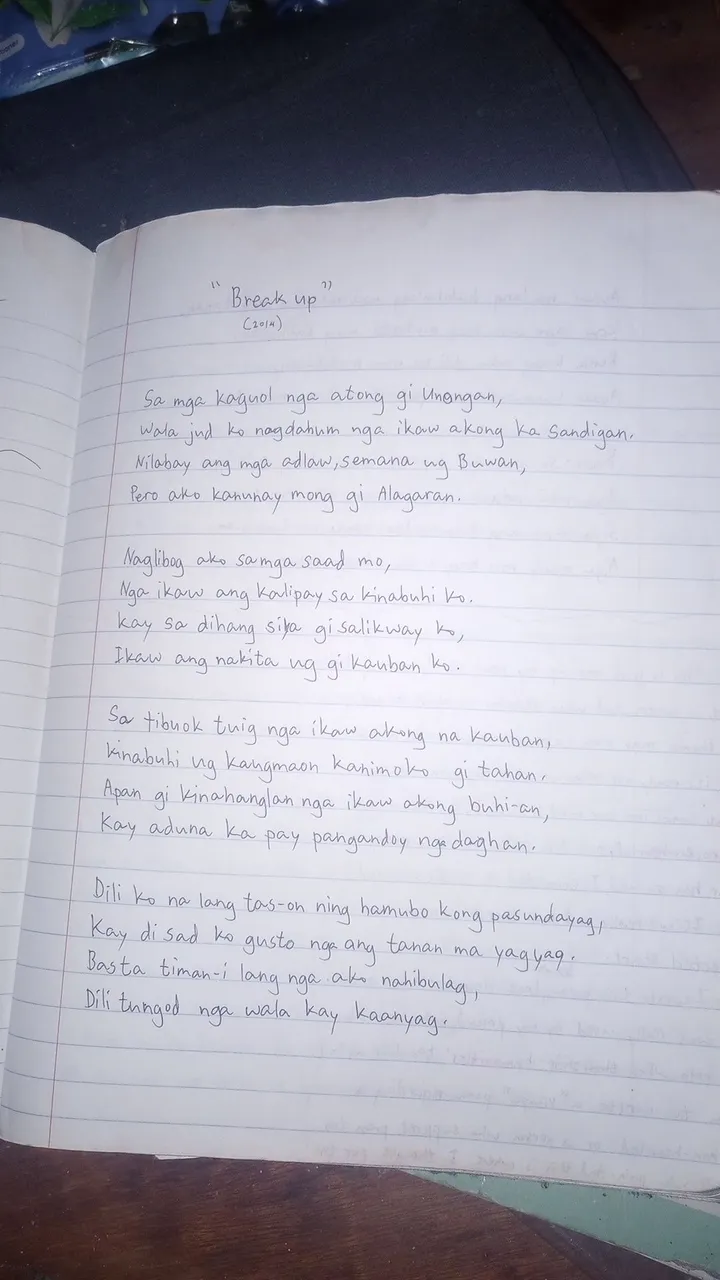 "Break up"
(2014)
Sa mga kaguol nga atong gi Unongan,
Wala jud ko nagdahum nga ikaw akong ka Sandigan.
Nilabay ang mga adlaw, semana ug Buwan,
Pero ako kanunay mong gi Alagaran.
Naglibog ako sa mga saad mo,
Nga ikaw ang kalipay sa kinabuhi ko.
Kay sa dihang siya gi salikway ko,
Ikaw ang nakita ug gi kauban ko.
Sa tibuok tuig nga ikaw akong na kauban,
Kinabuhi ug kaugmaon kanimo ko gi tahan.
Apan gi kinahanglan nga ikaw akong buhi-an,
Kay aduna ka pay pangandoy nga daghan.
Dili ko na lang tas-on ning hamubo kong pasundayag,
Kay di sad ko gusto nga ang tanan ma yagyag.
Basta timan-i lang nga ako nahibulag,
Dili tungod nga wala kay kaanyag.